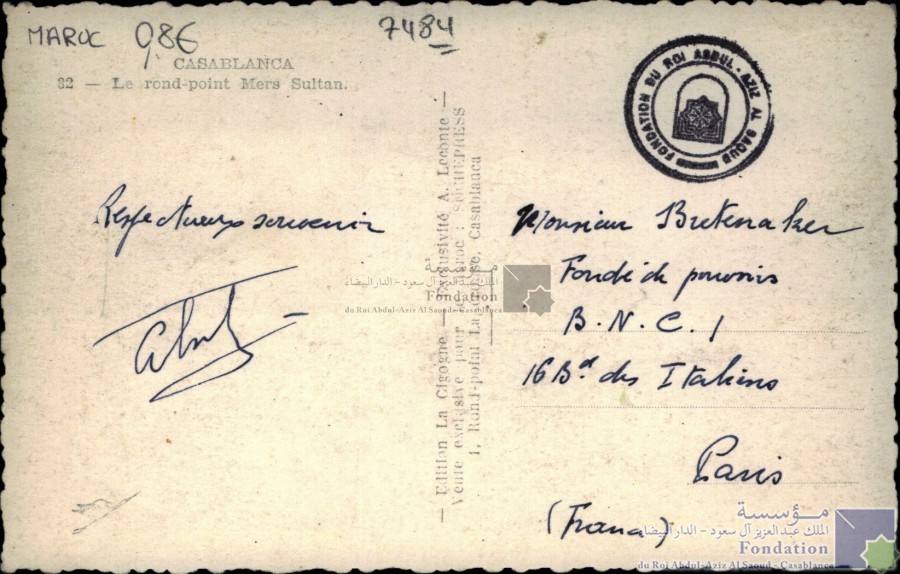 MAROC 0,8€
7484
CASABLANCA
32 — Le rond-point Mers Sultan.
FONDATION DU ROI ABDUL-AZIZ AL SAOUD
Respectueux souvenir
— Edition La Cigogne — Exclusivité A. Leconte —
Vente exclusive pour le Maroc : SOCHEPRESS
1, Rond-point Casablanca
Monsieur Bretenaker
Fondé de pouvoirs
B.N.C.I
16 Bd des Italiens
Paris
(France)
مؤسسة
الملك عبد العزيز آل سعود - الدار البيضاء
Fondation
du Roi Abdul-Aziz Al Saoud - Casablanca
مؤسسة
الملك عبد العزيز آل سعود - الدار البيضاء
Fondation
du Roi Abdul-Aziz Al Saoud - Casablanca